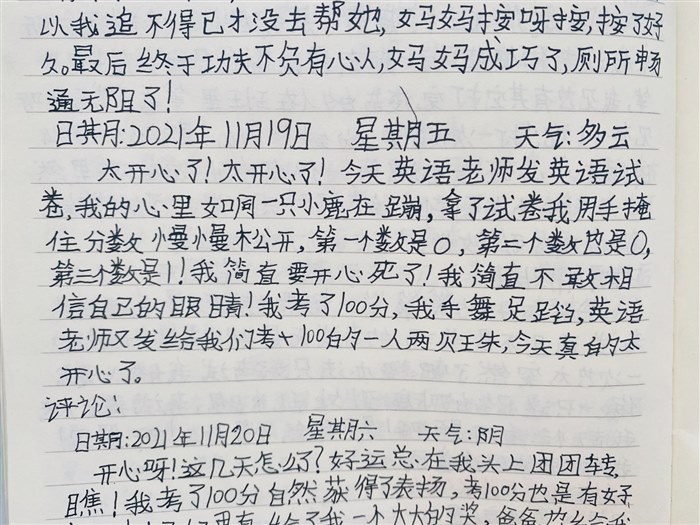 以我追不得已才没去帮她,妈妈按呀按,按了好
久。最后终于功夫不负有心人,妈妈成巧了,厕所畅
通无阻了!
日期:2021年11月19日 星期五 天气:多云
太开心了!太开心了!今天英语老师发英语试
卷,我的心里如同一只小鹿在蹦,拿了试卷我用手掩
住分数慢慢松开,第一个数是0,第二个数也是0,
第三个数是1!我简直要开心死了!我简直不敢相
信自己的眼睛!我考了100分,我手舞足蹈,英语
老师又发给我们考100的一人两贝王朱,今天真的太
开心了。
评论:
日期:2021年11月20日 星期六 天气:阴
开心呀!这几天怎么了?好运总在我头上团团转,
瞧!我考了100分自然获得了表扬,考100分也是有好
给了我一个大大的奖,爸爸